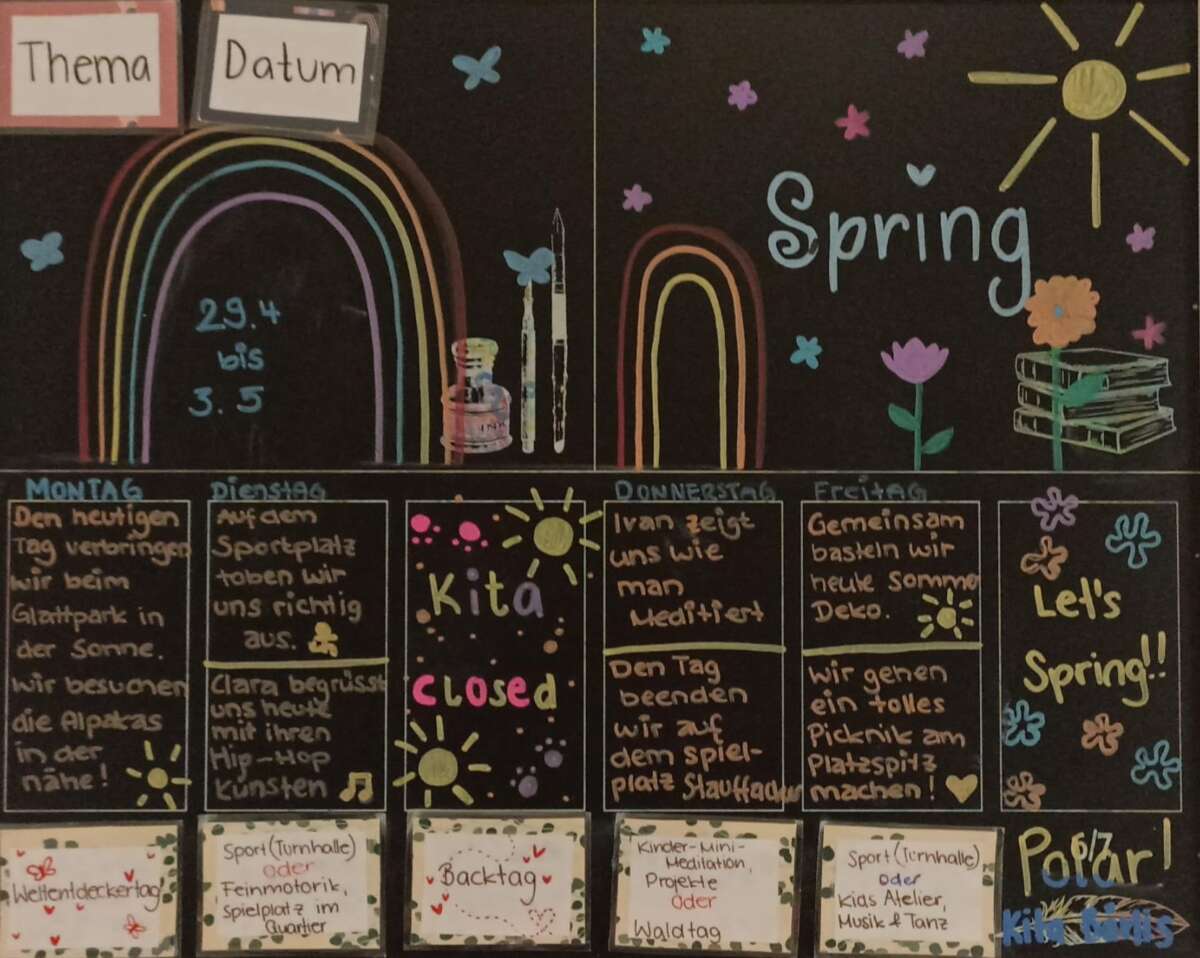 Thema
Datum
29.4
bis
3.5
INK
Spring
MONTAG
Den heutigen
Tag verbringen
wir beim
Glattpark in
der Sonne.
Wir besuchen
die Alpakas
in der
nähe!
Dienstag
Auf dem
Sportplatz
toben wir
uns richtig
aus.
Clara begrüsst
uns heute
mit ihren
Hip-Hop
künsten
Kita
closed
DONNERSTAG
Ivan zeigt
uns wie
man
Meditiert
Den Tag
beenden
wir auf
dem spiel-
platz Stauffacher
Freitag
Gemeinsam
basteln wir
heute Sommer
Deko.
Wir gehen
ein tolles
Picknik am
Platzspitz
machen!
Let's
Spring!!
Weltentdeckertag
Sport (Turnhalle)
oder
Feinmotorik,
Spielplatz im
Quartier
Backtag
Kinder-Mini-
Meditation,
Projekte
oder
Waldtag
Sport (Turnhalle)
oder
Kias Atelier,
Musik & Tanz
Polar!
6/7
Kita